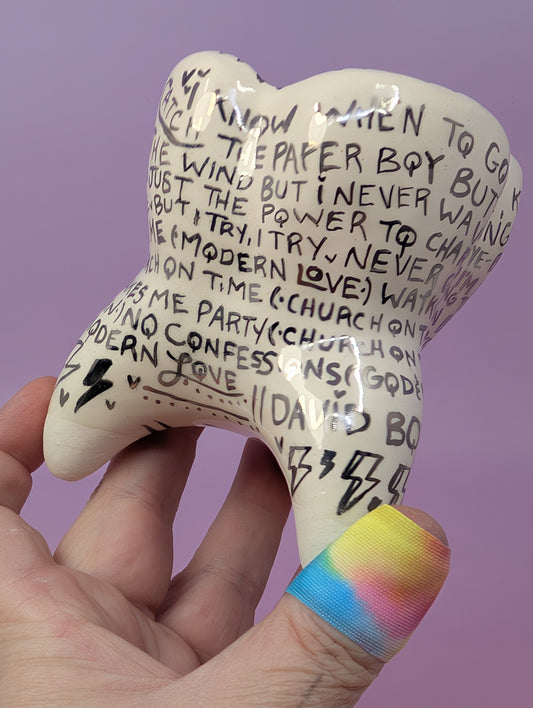 I KNOW WHEN TO GO
CATCH THE PAPER BOY BUT
WIND BUT i NEVER WAVING
JUST THE POWER TO
BUT I TRY, I TRY NEVER
ME (MODERN LOVE) WALK
CH ON TIME (CHURCH ON T
ES ME PARTY (CHURCH ON
NO CONFESSIONS (GOD
ODERN LOVE
DAViD BO